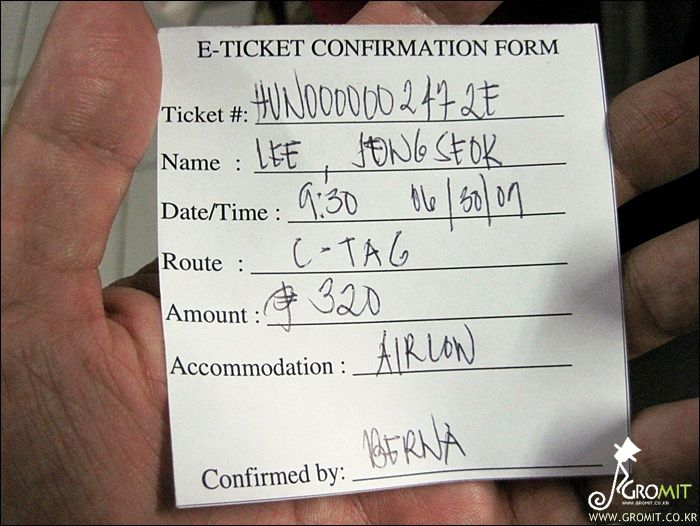 E-TICKET CONFIRMATION FORM
Ticket #: HUN0000002472E
Name : LEE, JONGSEOK
Date/Time : 9:30 06/30/07
Route : C-TAG
Amount : ₱ 320
Accommodation : AIRCON
Confirmed by: BERNA
GROMIT
WWW.GROMIT.CO.KR
WWW.GROMIT.CO.KR